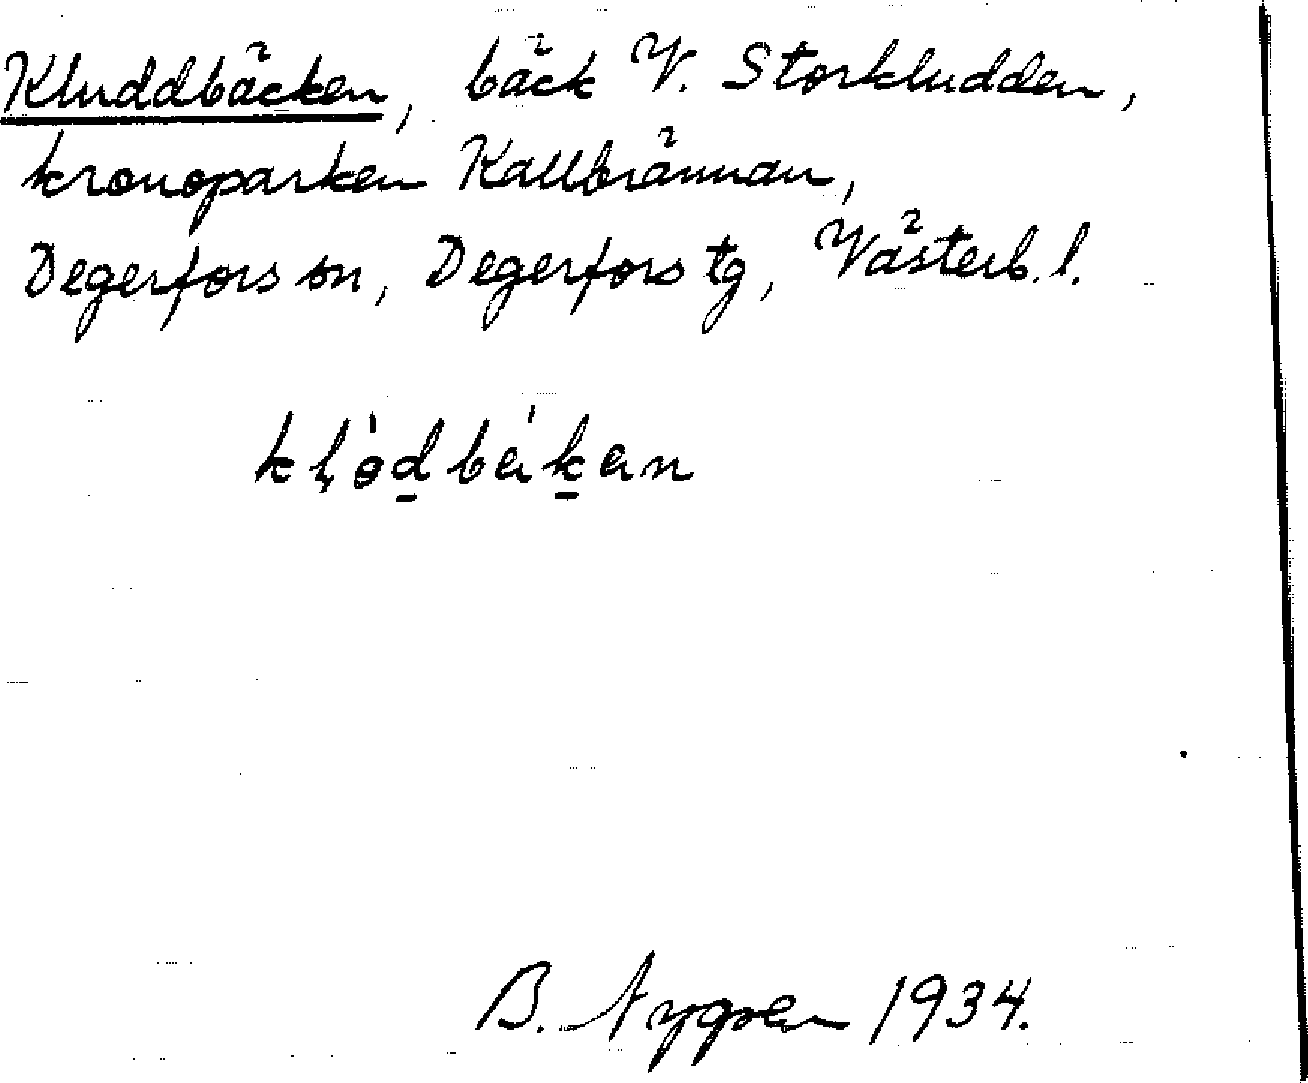 Kluddbäcken, bäck V. Storkludden,
kronoparken Kallbrännan,
Degerfors sn, Degerfors tg, Västerb. l.
B. Nygren 1934.